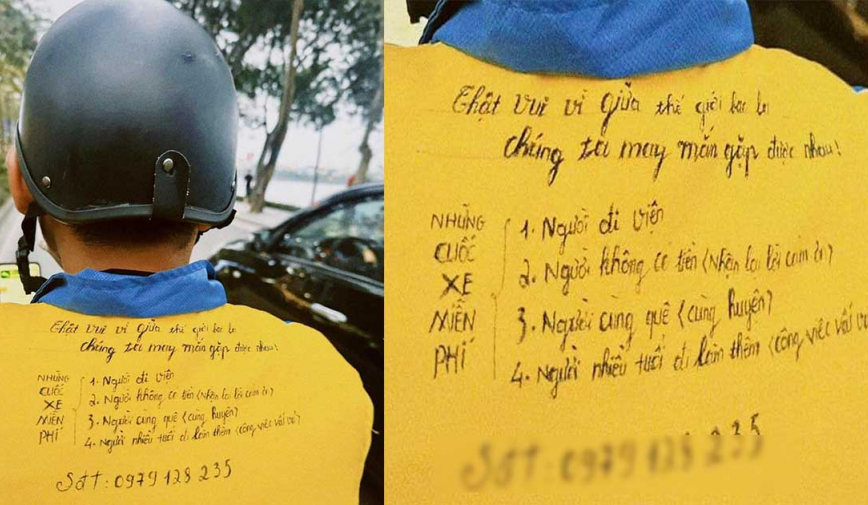 Thật vui vì giữa thế giới bao la
chúng ta may mắn gặp được nhau!
NHỮNG
CUỐC
XE
MIỄN
PHÍ
1. Người đi viện
2. Người không có tiền (Nhận lại lời cảm ơn)
3. Người cùng quê (cùng huyện)
4. Người nhiều tuổi đi làm thêm (công việc vất vả)
Sđt: 0979 128 235
Thật vui vì giữa thế giới bao la
chúng ta may mắn gặp được nhau!
NHỮNG
CUỐC
XE
MIỄN
PHÍ
1. Người đi viện
2. Người không có tiền (Nhận lại lời cảm ơn)
3. Người cùng quê (cùng huyện)
4. Người nhiều tuổi đi làm thêm (công việc vất vả